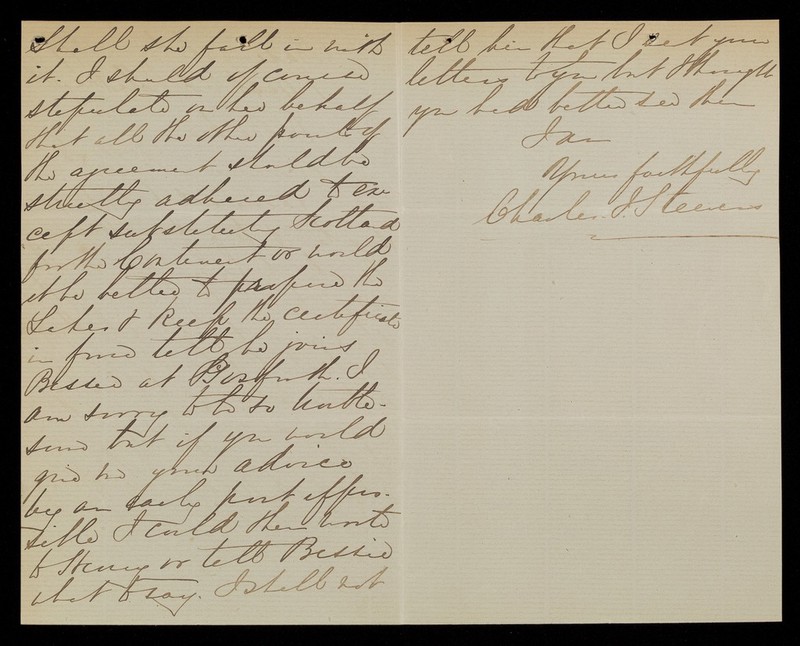 Shall she fall in with
it. I should of course
stipulate on her behalf
that all the other points of
the agreement should be
strictly adhered to ex
cept substituting Scotland
for the Continent or would
it be better to propose the
Lakes & keep the certificate
in force till he joins
Bessie at Gosforth. I
am sorry to be so trouble-
some but if you would
give me your advice
by an early post if pos-
sible I could then write
to Henry or tell Bessie
what to say. I shall not
tell him that I sent your
letters to you but I thought
you had better see them
I am
Yours faithfully
Charles J. Stevens